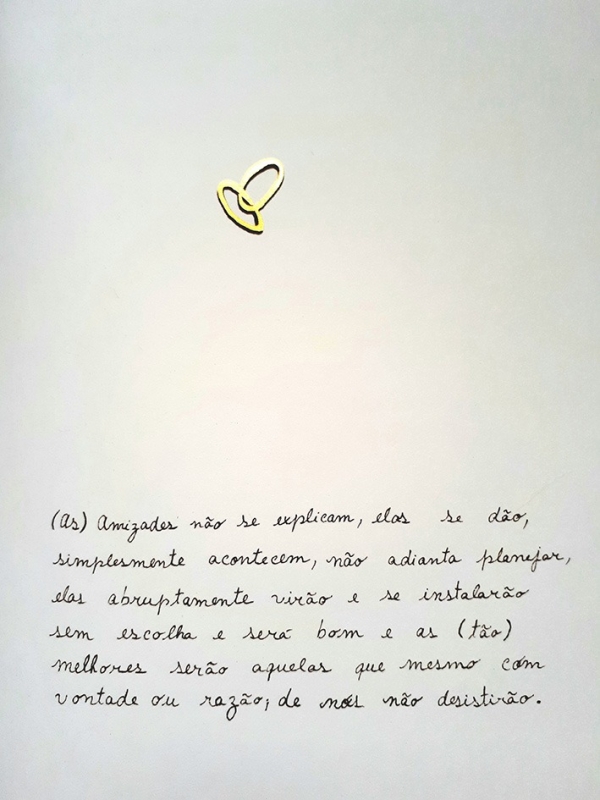 (As) Amizades não se explicam, elas se dão,
simplesmente acontecem, não adianta planejar,
elas abruptamente virão e se instalarão
sem escolha e será bom e as (tão)
melhores serão aquelas que mesmo com
vontade ou razão, de nós não desistirão.